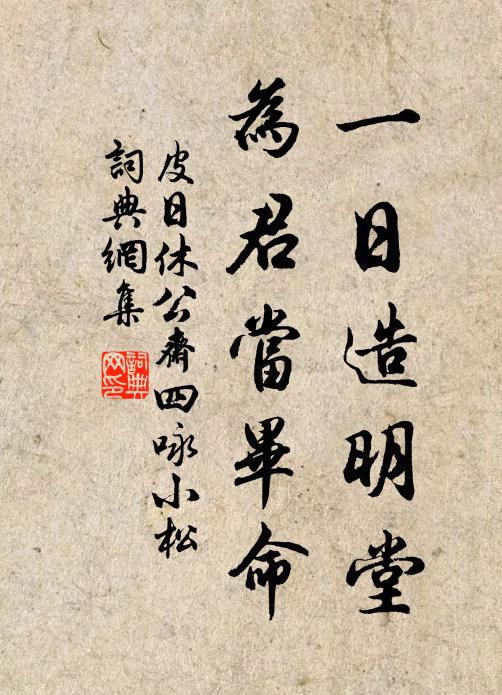 一日造明堂
為君當畢命
皮日休公齋四咏小松
詞典網集
詞典网印